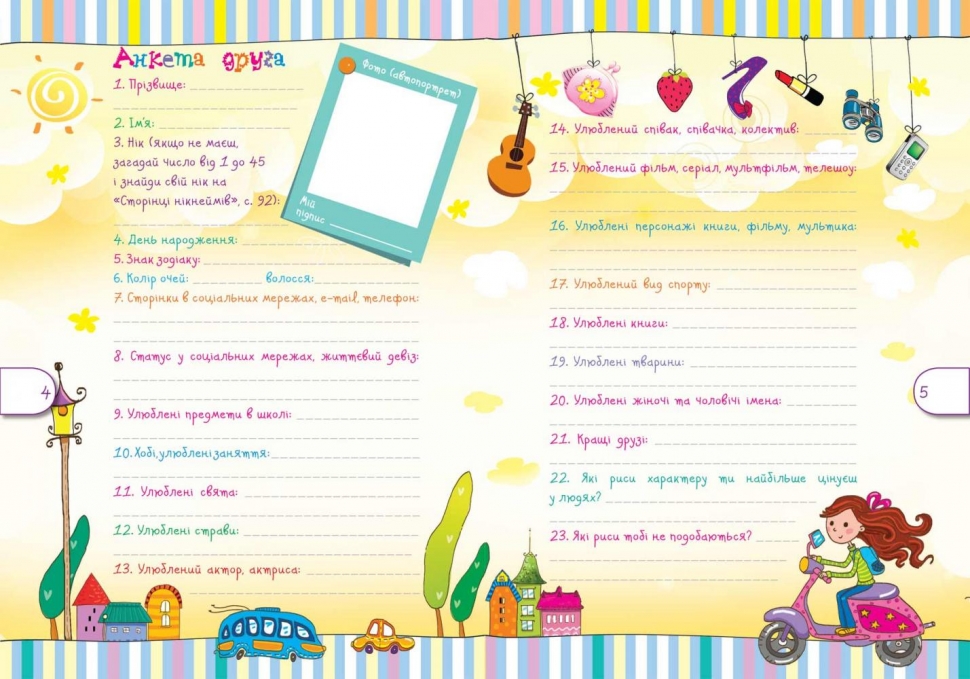 Анкета друга
1. Прізвище:
2. Ім'я:
3. Нік (якщо не маєш,
загадай число від 1 до 45
і знайди свій нік на
«Сторінці нікнеймів», с. 92):
Фото (автопортрет)
Мій
підпис
4. День народження:
5. Знак зодіаку:
6. Колір очей: волосся:
7. Сторінки в соціальних мережах, e-mail, телефон:
8. Статус у соціальних мережах, життєвий девіз:
9. Улюблені предмети в школі:
10. Хобі, улюблені заняття:
11. Улюблені свята:
12. Улюблені страви:
13. Улюблений актор, актриса:
4
14. Улюблений співак, співачка, колектив:
15. Улюблений фільм, серіал, мультфільм, телешоу:
16. Улюблені персонажі книги, фільму, мультика:
17. Улюблений вид спорту:
18. Улюблені книги:
19. Улюблені тварини:
20. Улюблені жіночі та чоловічі імена:
21. Кращі друзі:
22. Які риси характеру ти найбільше цінуєш
у людях?
23. Які риси тобі не подобаються?
5